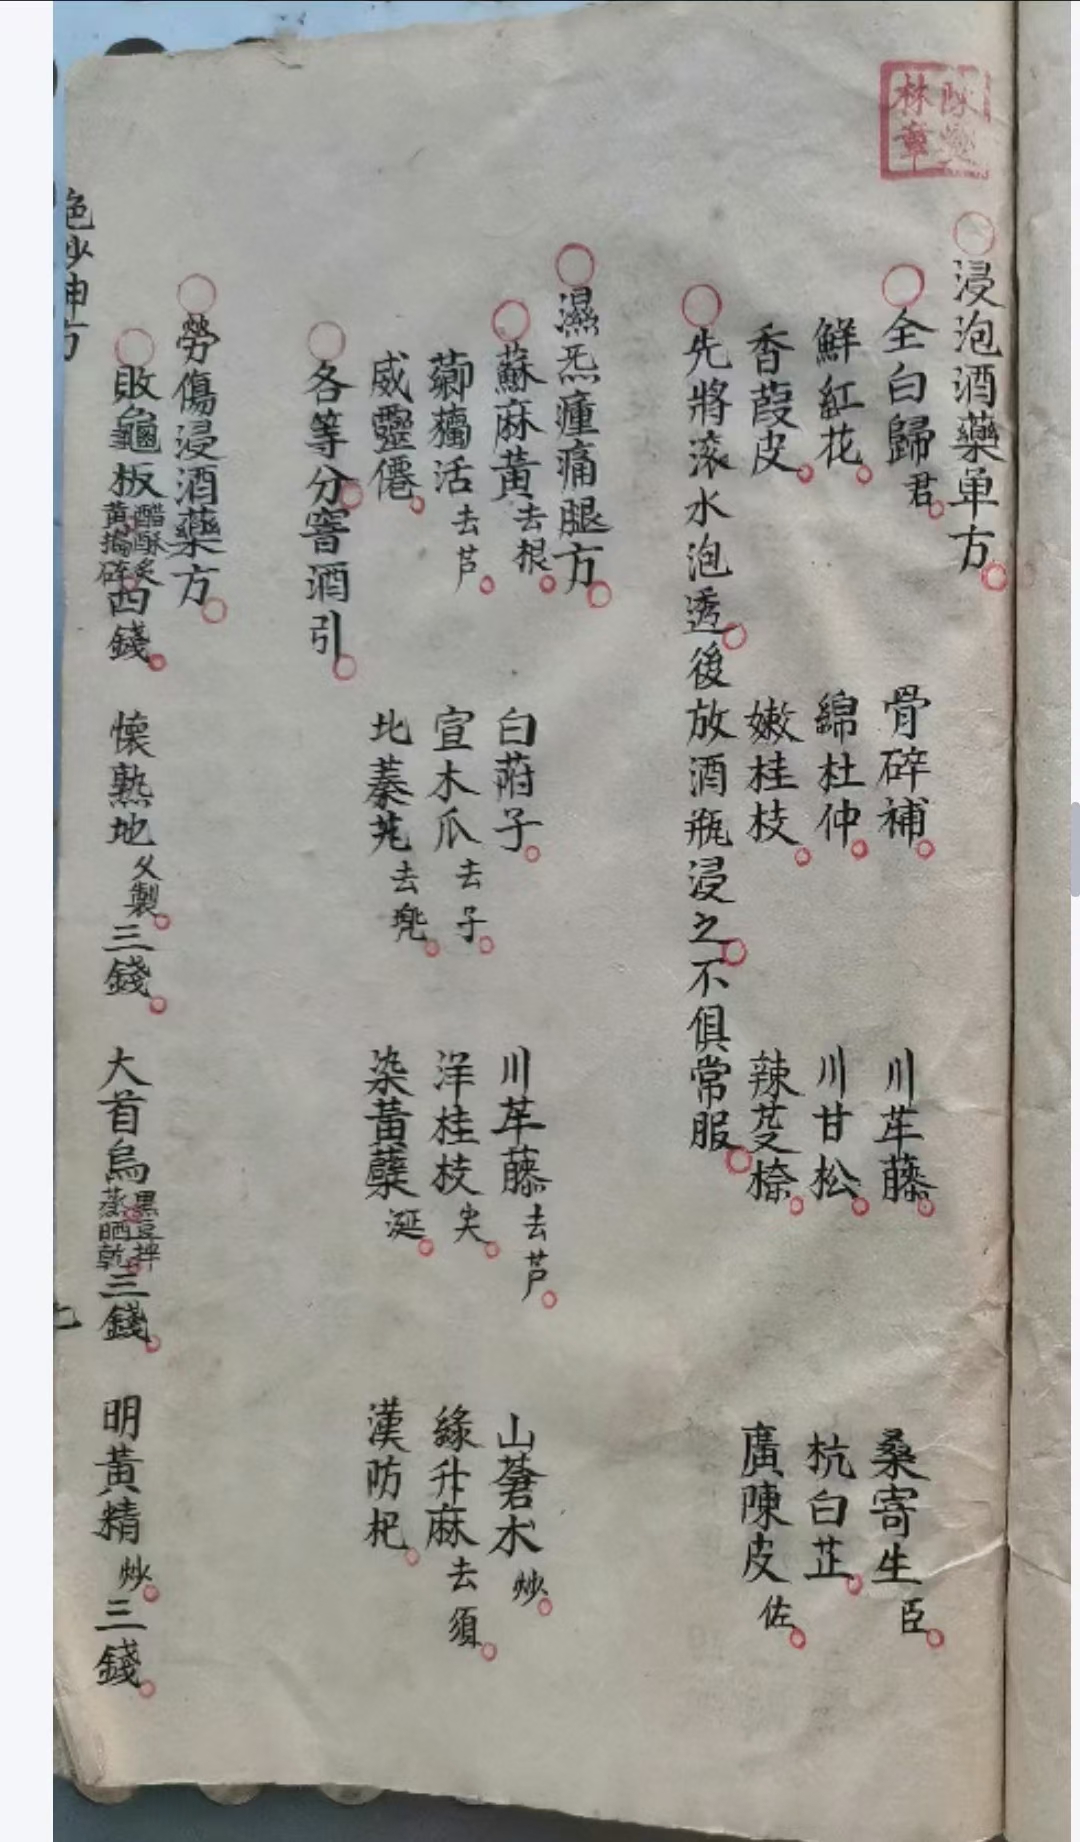 浸泡酒藥单方
全白歸君 骨碎補 川芈藤 桑寄生臣
鮮紅花 綿杜仲 川甘松 杭白芷
香葭皮 嫩桂枝 辣芟㮏 廣陳皮佐
先將滚水泡透後放酒瓶浸之不俱常服
濕炁瘇痛腿方
蘇麻黃去根 白萠子 川芈藤去芦 山蒼木炒
活去芦 宣木瓜去子 洋桂枝尖 綠升麻去須
威靈僊 北蓁艽去兠 染黃蘗涎 漢防杞
各等分窖酒引
勞傷浸酒藥方
敗龜板醋酥炙黃搗碎四錢 懷熟地久製三錢 大首烏黑豆拌蒸晒乾三錢 明黃精炒三錢
林章